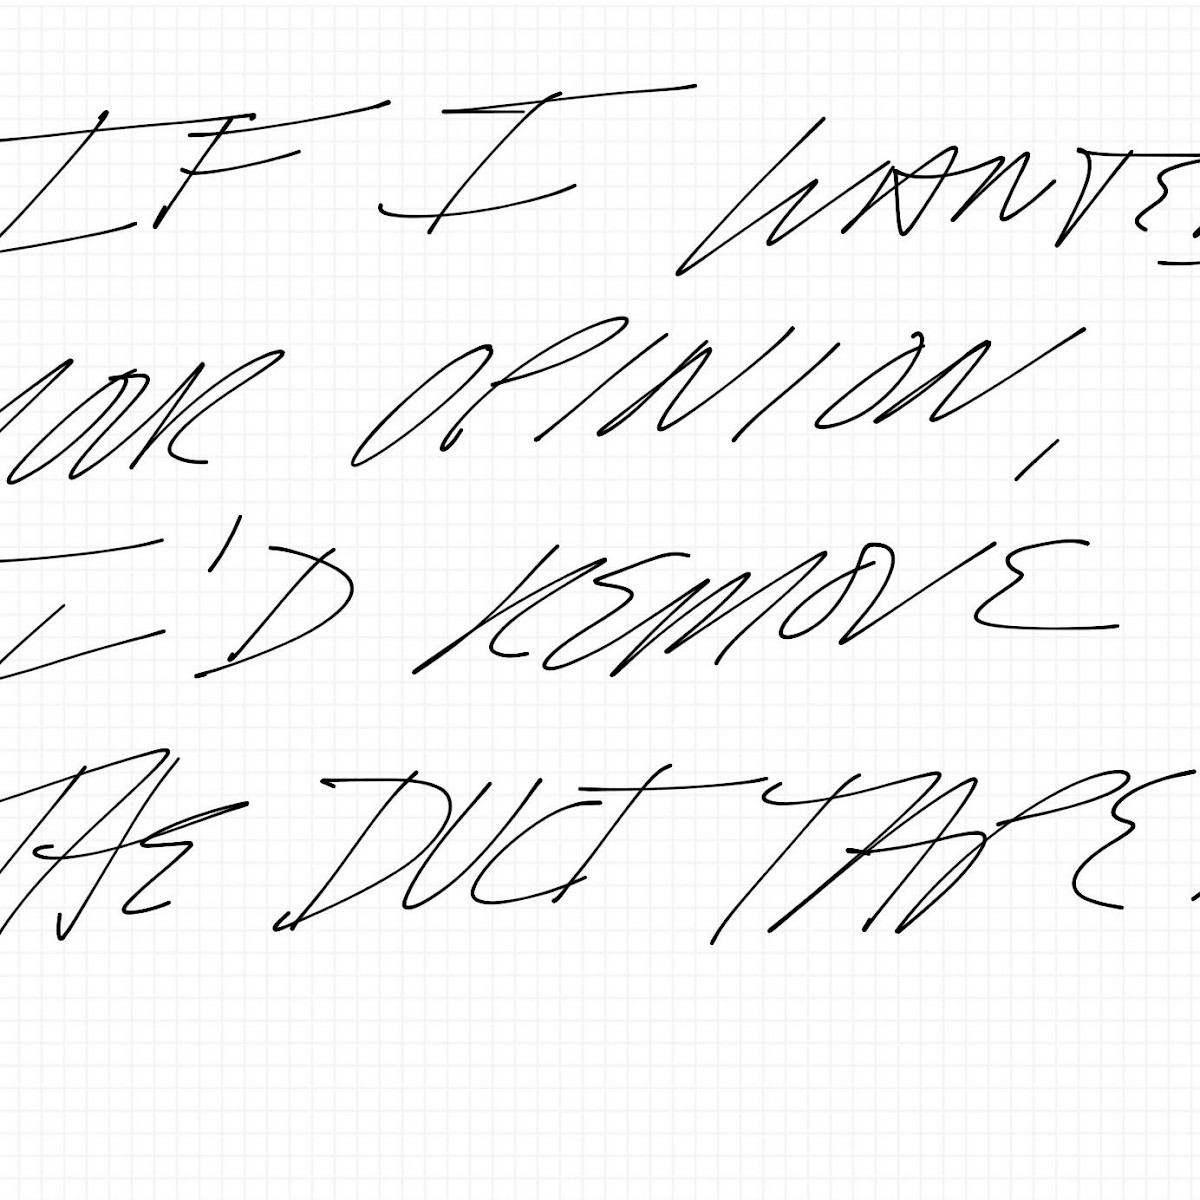 IF I WANTED
YOUR OPINION,
I'D REMOVE
THE DUCT TAPE.